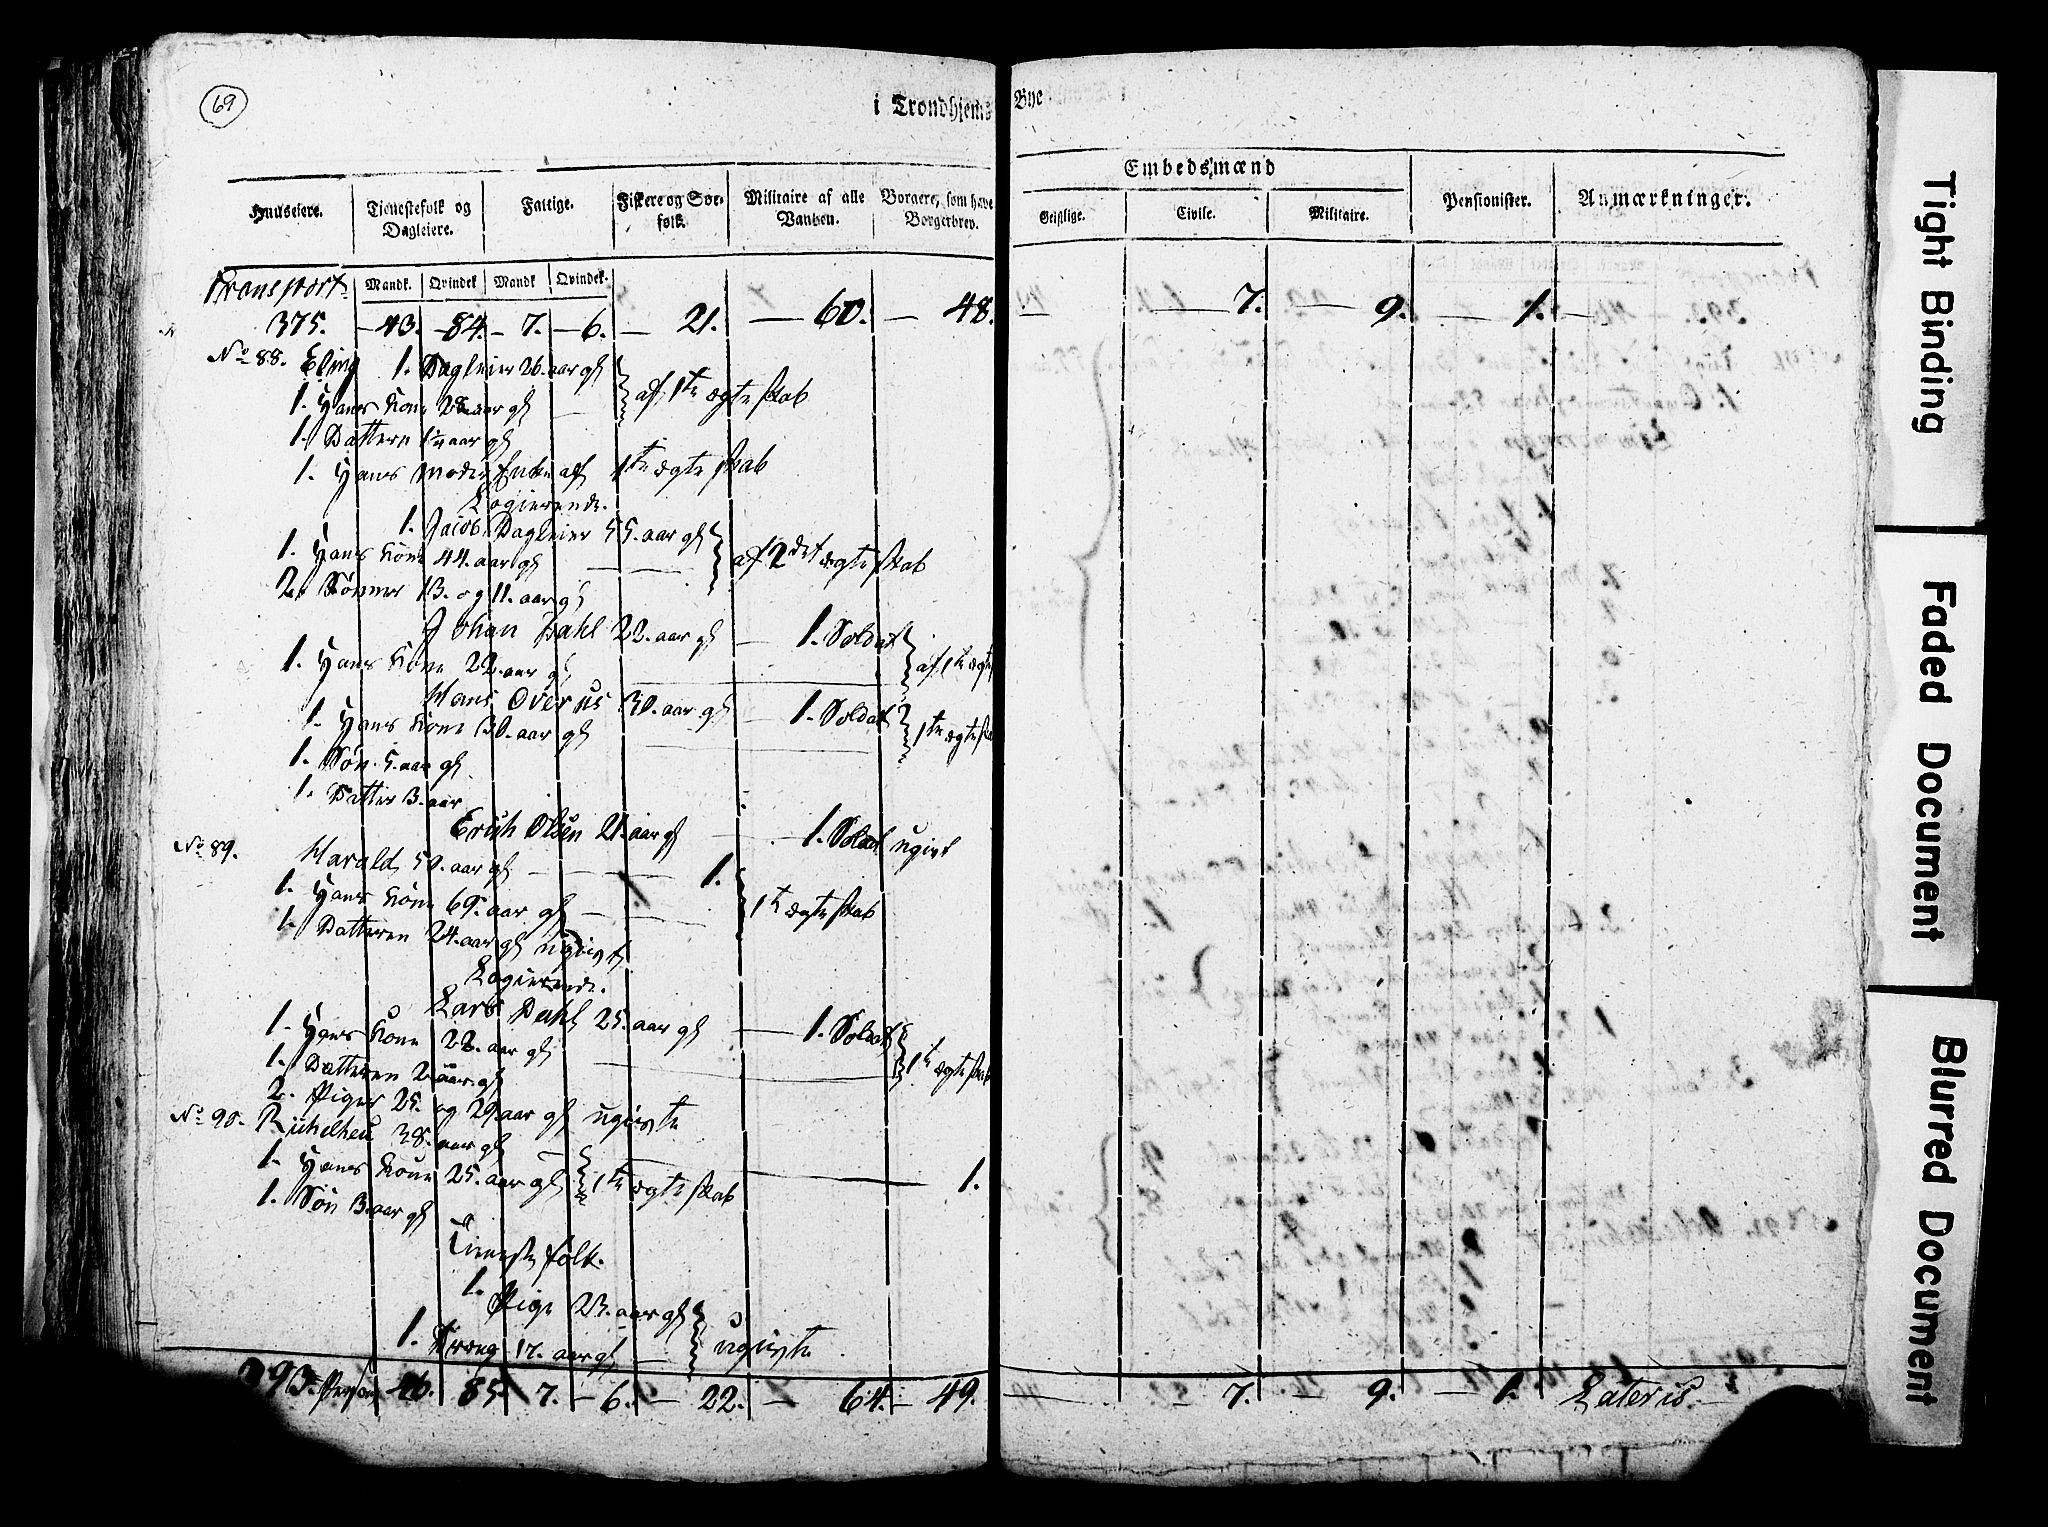 69
i Trondhjems Bye
Embedsmænd
Huuseiere. Tienestefolk og Dagleiere. Fattige. Fiskere og Søefolk. Militaire af alle Vaaben. Borgere, som have Borgerbrev. Geistlige. Civile. Militaire. Pensionister. Anmærkninger.
Mandk. Qvindek Mandk Qvindek.
Transport
375. — 43. — 84. — 7. — 6. — 21. — 60. — 48. — 7. — 9. — 1. —
No 88. Eling 1. Dagleier 26. aar gl
1. Hans Kone 28. aar gl — af 1te ægteskab
1. Datteren 1½ aar gl
1. Hans Moder Enke af 1te ægteskab
Logierende.
1. Jacob Dagleier 55. aar gl
1. Hans Kone 44. aar gl — af 2det ægteskab
2. Sønner 13. og 11. aar gl
Johan Dahl 22. aar gl — 1. Soldat
1. Hans Kone 22. aar gl af 1te ægte
Hans Overaas 30. aar gl — 1. Soldat
1. Hans Kone 30. aar gl 1te ægteska
1. Søn 5. aar gl
1. Datter 3. aar
Erich Olsen 21. aar gl — 1. Soldat ugivt
No 89. Harald 50. aar gl — 1.
1. Hans Kone 69. aar gl — 1te ægteskab
1. Datteren 24. aar gl ugivt
Logierende.
Lars Dahl 25. aar gl — 1. Soldat
1. Hans Kone 22. aar gl
1. Datteren 2. aar gl 1te ægteskab
2. Piger 25. og 29. aar gl ugivte
No 90. Richelheu 38. aar gl —
1. Hans Kone 25. aar gl 1te ægteskab — 1.
1. Søn 3. aar gl
Tienestefolk.
1. Pige 23. aar gl
1. Dreng 17. aar gl — ugivte
393. Person 46. 85 7. — 6. — 22. — 64. — 49. — 7. — 9. — 1. Lateris.
Tight Binding
Faded Document
Blurred Document